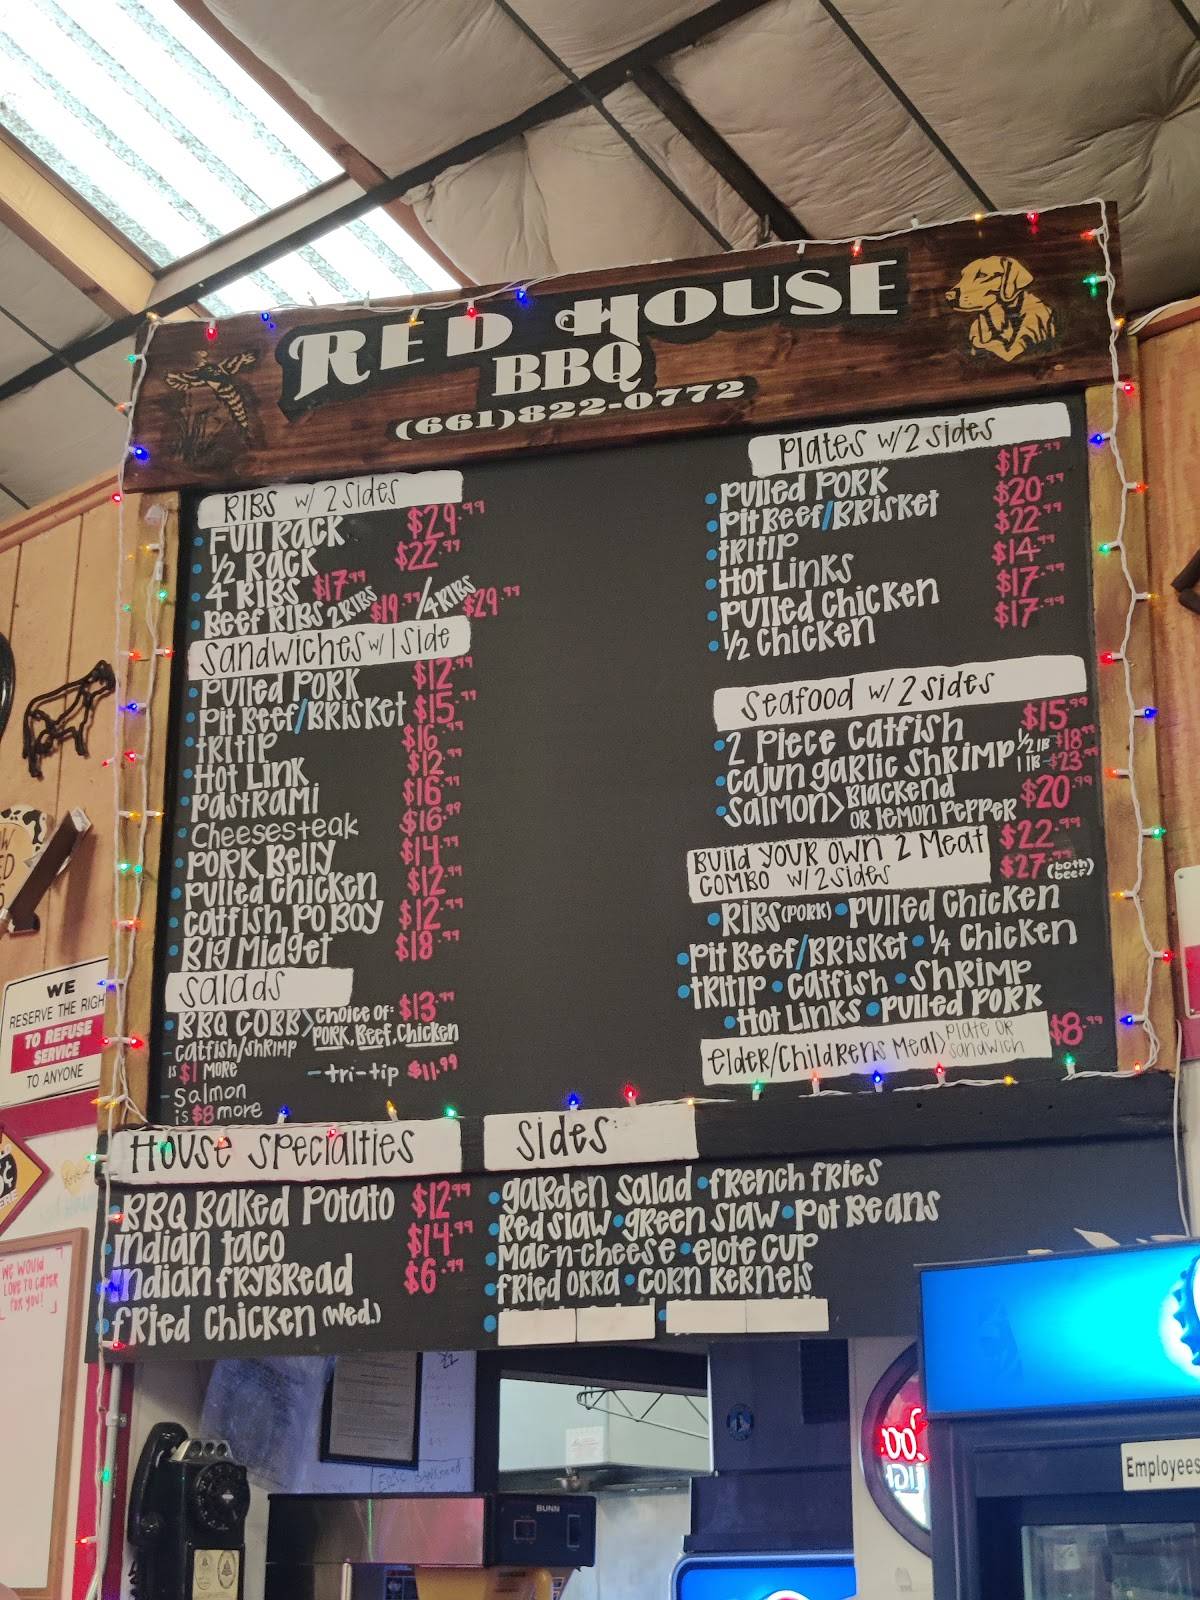 RED HOUSE
BBQ
(661)822-0772
RIBS w/ 2 sides
FULL RACK $29.99
1/2 RACK $22.99
4 RIBS $17.99
BEEF RIBS 2 RIBS $19.99 / 4 RIBS $29.99
Sandwiches w/ 1 side
PULLED PORK $12.99
Pit Beef/BRISKET $15.99
TRITIP $16.99
Hot Link $12.99
Pastrami $16.99
Cheesesteak $16.99
PORK Belly $14.99
PULLED Chicken $12.99
Catfish PO BOY $12.99
Big Midget $18.99
Salads
BBQ COBB > Choice of: $13.99
PORK, Beef, Chicken
- Catfish/Shrimp
is $1 MORE
- tri-tip $11.99
- Salmon
is $8 more
Plates w/ 2 sides
PULLED PORK $17.99
Pit Beef/BRISKET $20.99
TRITIP $22.99
Hot Links $14.99
PULLED Chicken $17.99
1/2 Chicken $17.99
Seafood w/ 2 sides
2 Piece Catfish $15.99
Cajun garlic Shrimp 1/2 lb $18.99
1 lb $23.99
Salmon > Blackend
OR lemon Pepper $20.99
Build YOUR OWN 2 Meat $22.99
COMBO w/ 2 sides $27.99 (both beef)
RIBS (PORK) • PULLED Chicken
Pit Beef/BRISKET • 1/4 Chicken
TRITIP • Catfish • Shrimp
Hot Links • PULLED PORK
Elder/Childrens Meal > Plate OR
Sandwich $8.99
House Specialties
BBQ Baked Potato $12.99
Indian taco $14.99
Indian FRYBREAD $6.99
FRIED Chicken (Wed.)
Sides
garden Salad • french fries
Red slaw • green slaw • Pot Beans
Mac-n-cheese • elote cup
fried okra • corn kernels
WE
RESERVE THE RIGH
TO REFUSE
SERVICE
TO ANYONE
WE WOULD
LOVE TO CATER
FOR YOU!
BUNN
Employees